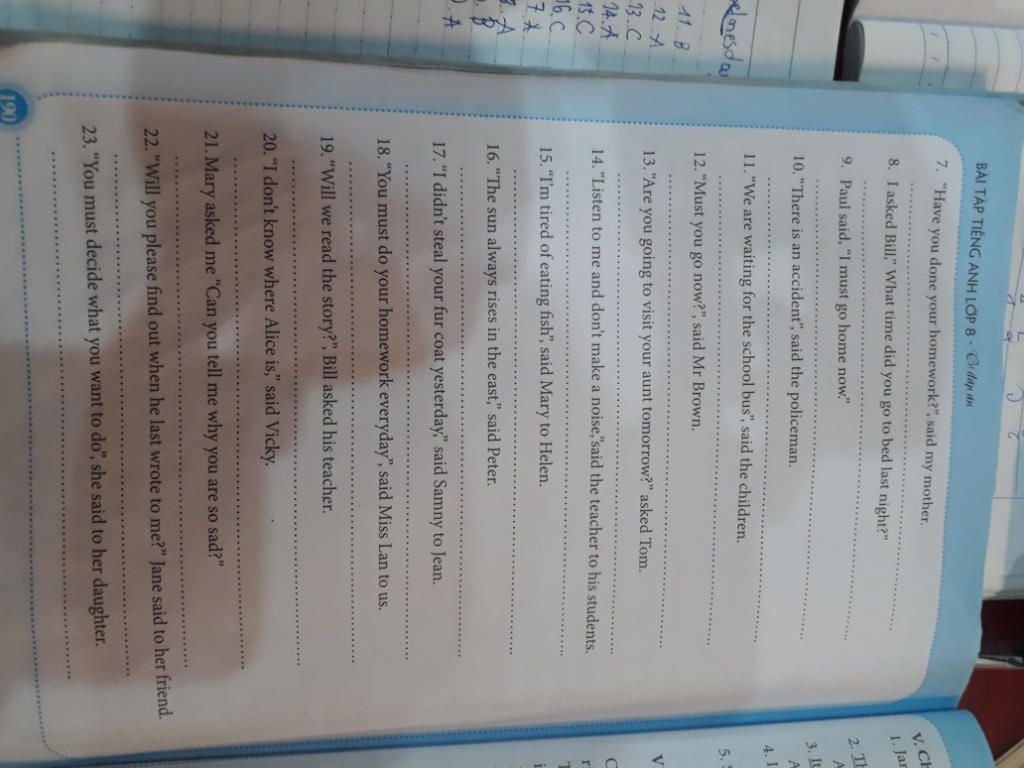 BÀI TẬP TIẾNG ANH LỚP 8 - Có đáp án
7. "Have you done your homework?", said my mother.
8. I asked Bill," What time did you go to bed last night?"
9. Paul said, "I must go home now."
10. "There is an accident", said the policeman.
11. "We are waiting for the school bus", said the children.
12. "Must you go now?", said Mr Brown.
13. "Are you going to visit your aunt tomorrow?" asked Tom.
14. "Listen to me and don't make a noise,"said the teacher to his students.
15. "I'm tired of eating fish", said Mary to Helen.
16. "The sun always rises in the east," said Peter.
17. "I didn't steal your fur coat yesterday," said Samny to Jean.
18. "You must do your homework everyday", said Miss Lan to us.
19. "Will we read the story?", Bill asked his teacher.
20. "I don't know where Alice is," said Vicky.
21. Mary asked me "Can you tell me why you are so sad?"
22. "Will you please find out when he last wrote to me?" Jane said to her friend.
23. "You must decide what you want to do", she said to her daughter.
190
11. B
12. A
13. C
14. A
15. C
16. C
7. A
A
B
A
V. Ch
1. Jar
2. Th
A
3. It
A
4. I
5.